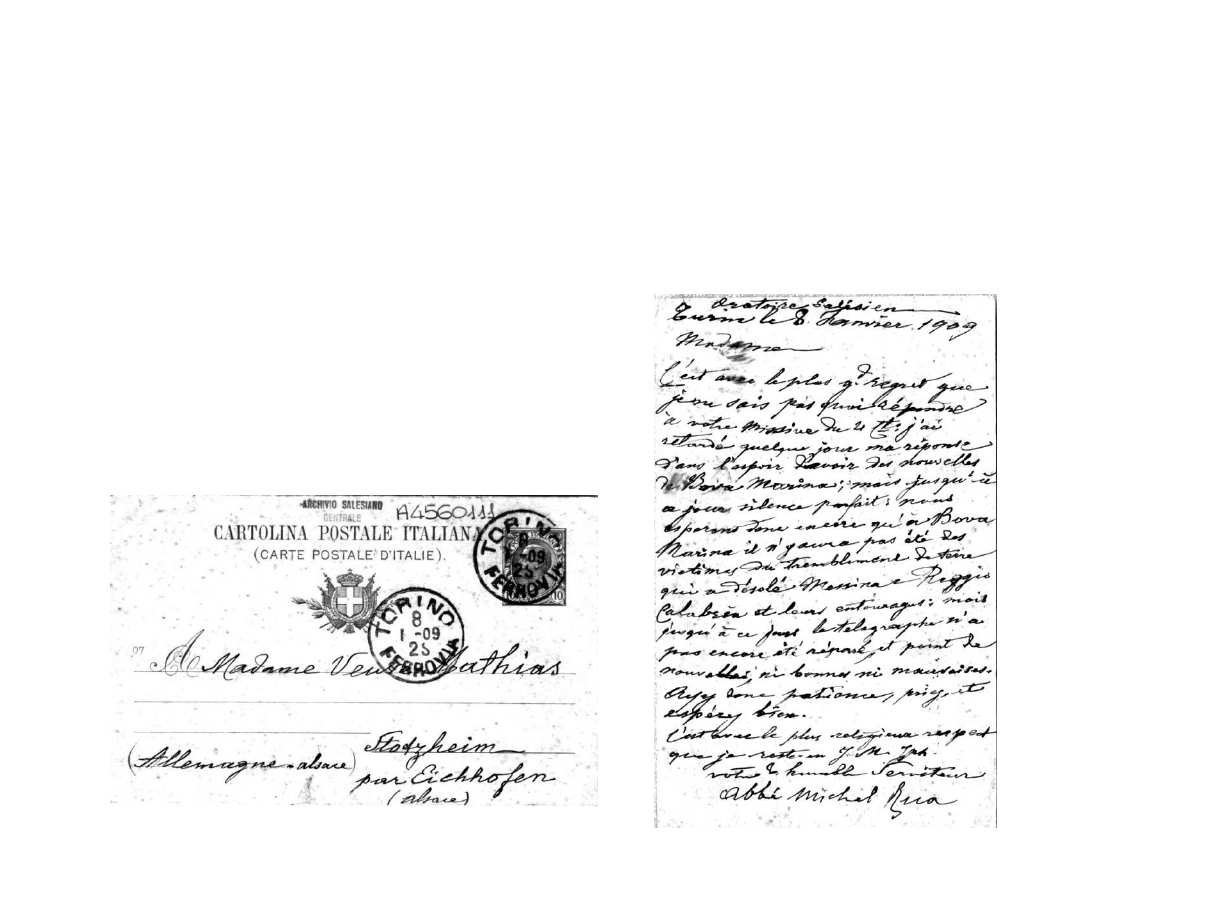 -ARCHIVIO SALESIANO
CENTRALE
A4560111
CARTOLINA POSTALE ITALIANA
(CARTE POSTALE D'ITALIE).
TORINO
8
1-09
2S
FERROVIA
10
TORINO
8
1-09
2S
FERROVIA
07
A Madame Veuve Mathias
Stotzheim
(Allemagne-alsace)
par Eichhofen
(alsace)
Oratoire Salésien
Turin le 8 Janvier 1909
Madame
C'est avec le plus gd regret que
je ne sais pas quoi répondre
à votre missive du 4 Ct: j'ai
retardé quelque jour ma réponse
dans l'espoir d'avoir des nouvelles
de Bova Marina; mais jusqu'à
ce jour silence parfait: nous
esperons donc encore qu'à Bova
Marina il n'y aura pas été des
victimes du tremblement de terre
qui a désolé Messina e Reggio
Calabria et leurs entourages: mais
jusqu'à ce jour le telegraphe n'a
pas encore été réparé, et point de
nouvelles, ni bonnes ni mauvaises.
Ayez donc patience, priez, et
espérez bien.
C'est avec le plus religieux respect
que je reste en J. M. Jph.
votre humble Serviteur
Abbé Michel Rua